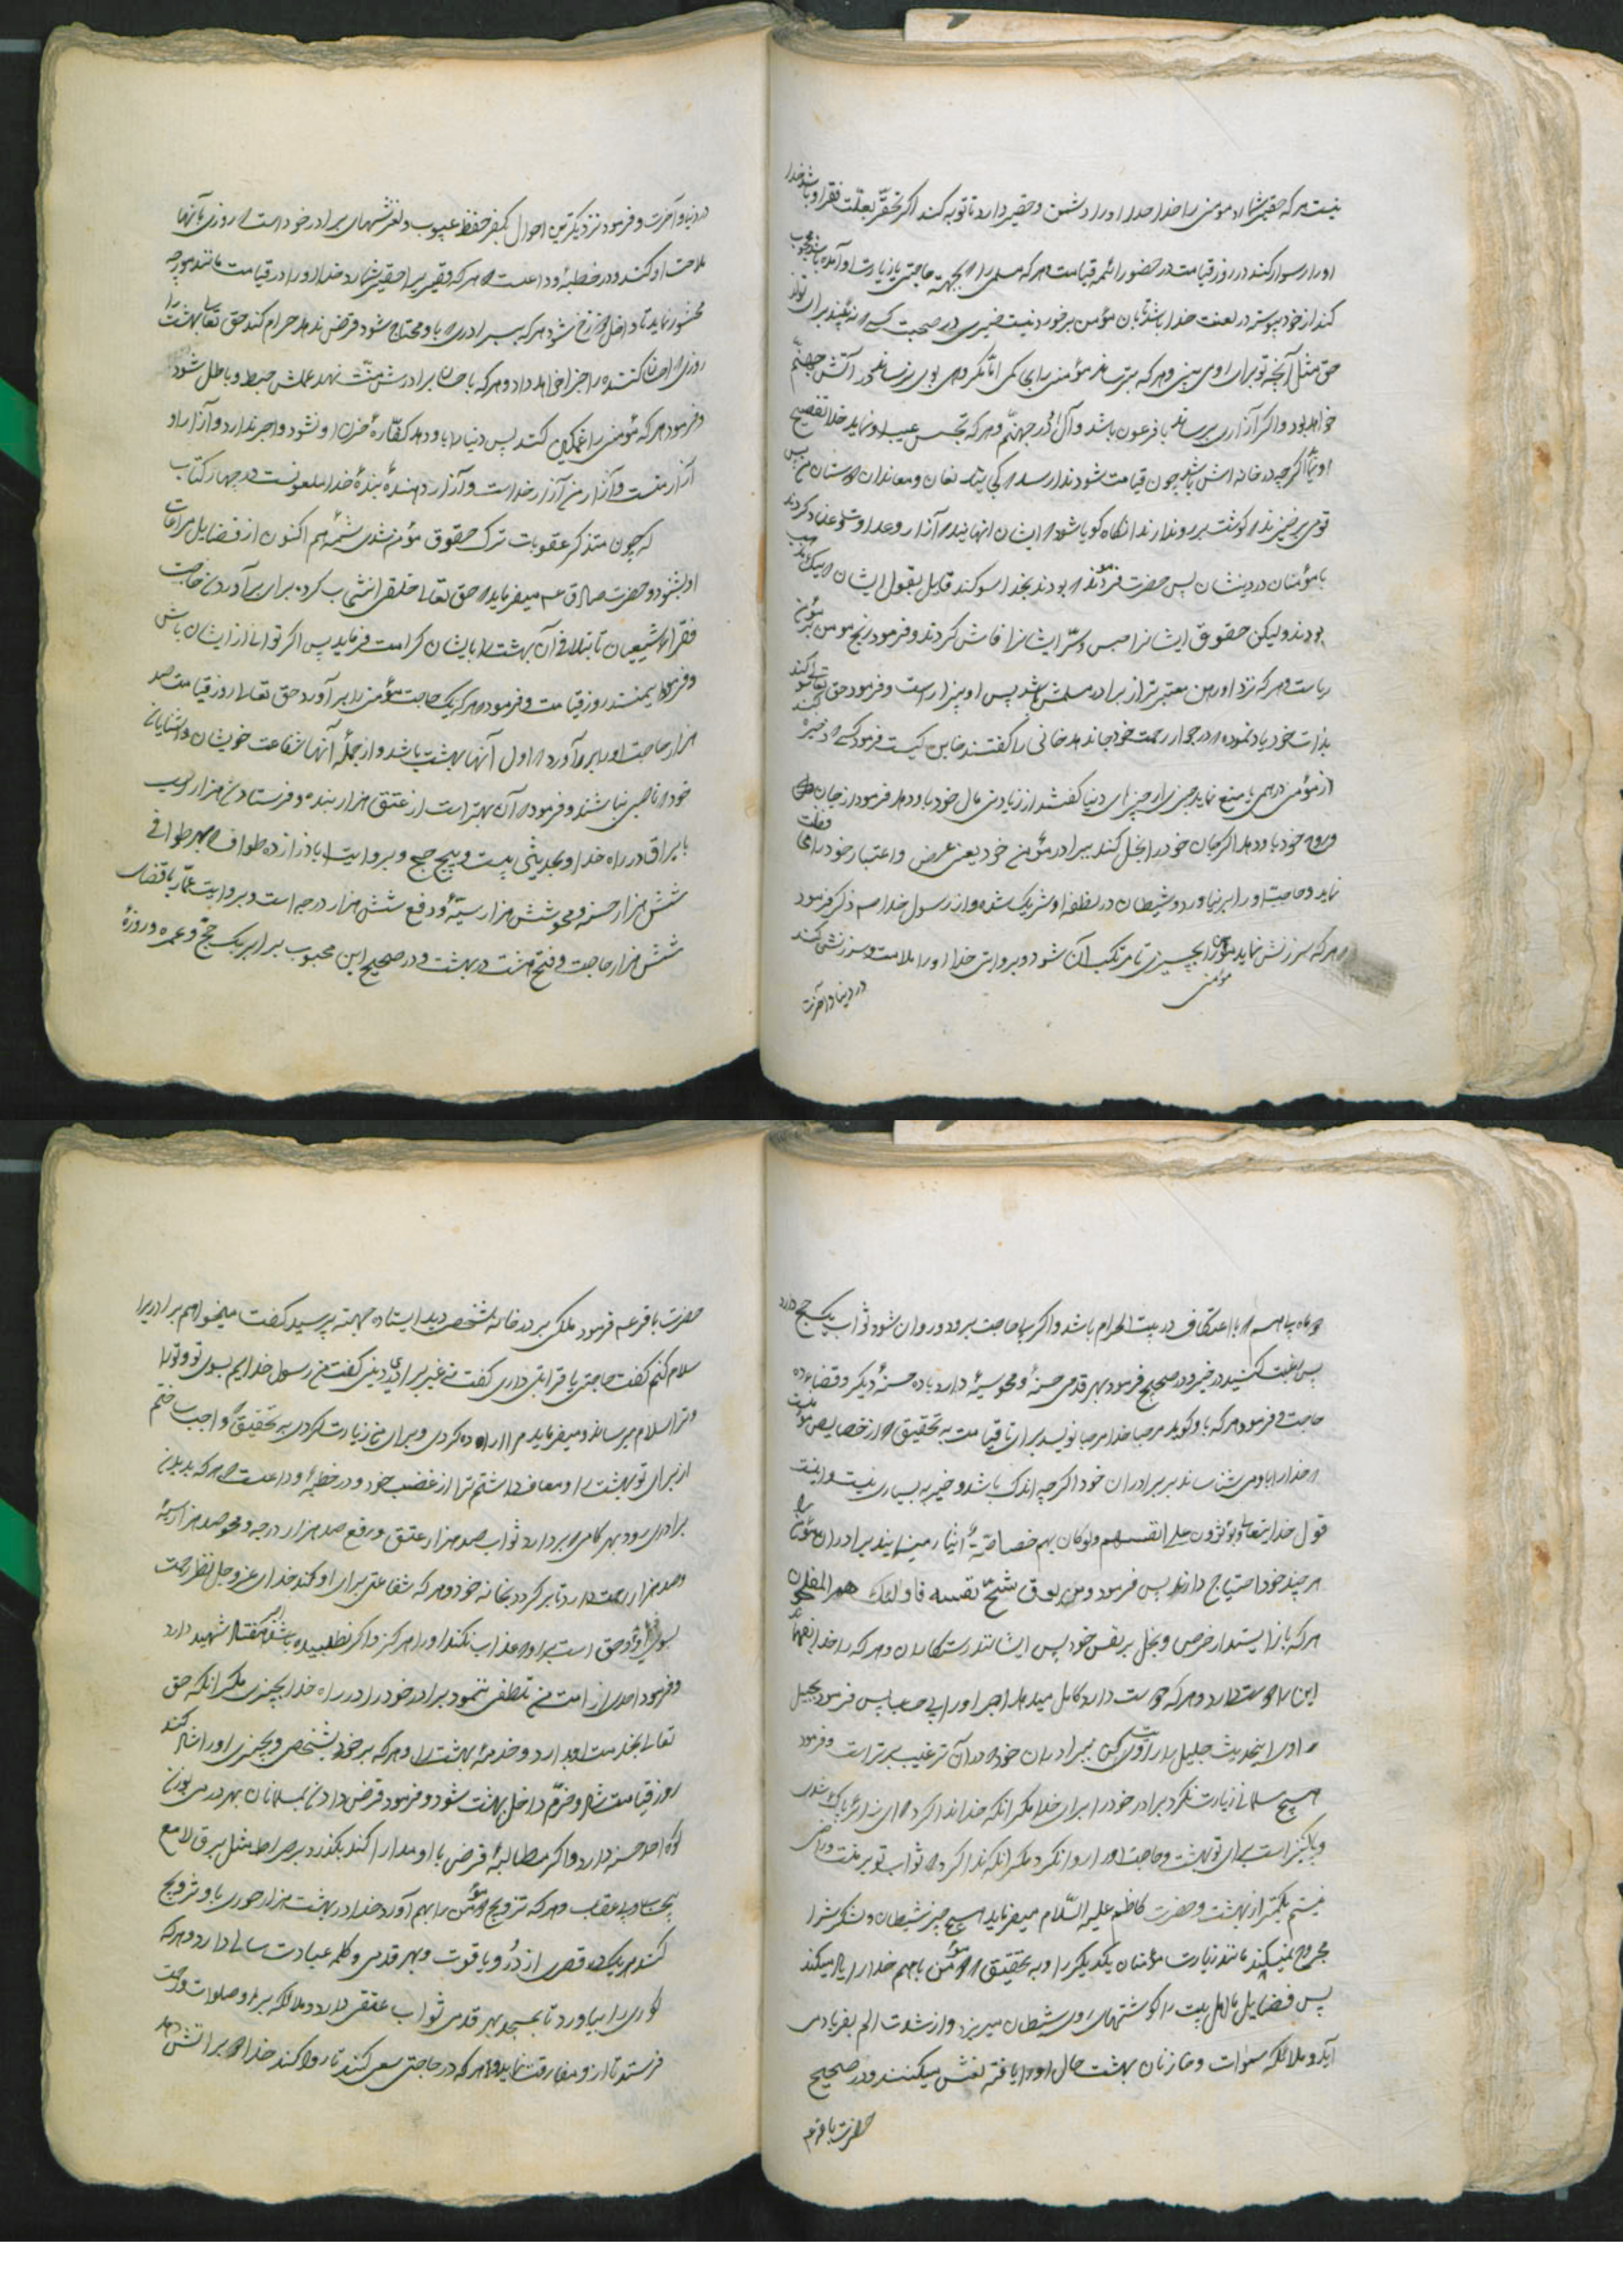 نیست هر که حقیر شمارد مؤمنی را خدا او را دشمن و حقیر دارد تا توبه کند اگر تحقیر بعلت فقر او باشد خدا
او را رسوا کند در روز قیامت در حضور ائمه قیامت هر که مسلمی را بجهت حاجتی یا زیارت او آمده باشد محجوب
کند از خود پیوسته در لعنت خدا باشد تا بآن مؤمن برخورد نیست خیری در صحبت کسی که نه بیند برای تو از
حق مثل آنچه تو برای او می بینی و هر که بترساند مؤمنی را بجای کمی اما مکروهی بوی نرساند در آتش جهنم
خواهد بود و اگر آزاری برساند با فرعون باشد و آل او در جهنم و هر که تجسس عیب او نماید خدا تفضیح
او نماید اگر چه در خانه اش باشد چون قیامت شود ندا رسد که کجایند مانعان و معاندان دوستان من پس
قومی برخیزند که گوشت بر رو ندارند آنگاه گویا شود که ایشان آنهایند که آزار و عداوت و عناد کردند
با مؤمنان در دینشان پس حضرت فرمود که بودند بخدا سوکند قایل بقول ایشان
بودند و لیکن حقوق ایشان را حبس و سر ایشان را فاش کردند و فرمود ربح مؤمن بر مؤمن
ربا ست و هر که نزد او رهن معتبرتر از برادر مسلمش باشد پس او بیزار است و فرمود حق تعالی سوکند
بذات خود یاد نموده که در جوار رحمت خود جا ندهد خائنی را گفتند خاین کیست فرمود کسی که ذخیره
از مؤمنی درهمی یا منع نماید چیزی از چیزهای دنیا گفتند از زیادتی مال خود باو دهد فرمود از جان
و روح خود باو دهد اگر بجان خود را بخل کند ببرادر مؤمن خود یعنی عرض و اعتبار خود را
نماید و حاجت او را بر نیاورد و شیطان در نطفه او شریک شده و از رسول خدا ص ذکر فرمود
و هر که سرزنش نماید مؤمن را بچیزی تا مرتکب آن شود و بروایتی خدا او را ملامت و سرزنش کند
مؤمنی
در دنیا و آخرت
در دنیا و آخرت و فرمود نزدیکترین احوال بکفر حفظ عیوب و لغزشهای برادر خود است که روزی بآنها
ملامت او کند و در خطبهٔ وداعست که هر که فقیری را حقیر شمارد خدا او را در قیامت مانند مورچه
محشور نماید تا داخل دوزخ شود هر که برادری باو محتاج شود و قرض ندهد حرام کند حق تعالی بهشت را
روزی که احسان کننده را جزا خواهد داد و هر که باحسان برادرش منت نهد عملش حبط و باطل شود
و فرمود هر که مؤمنی را غمگین کند پس دنیا را باو دهد کفّارهٔ حزن او نشود و اجر ندارد و آزار او
آزار منست و آزار من آزار خداست و آزار دهندهٔ بندهٔ خدا ملعونست در چهار کتاب
که چون متذکر عقوبات ترک حقوق مؤمن شدی شمّه هم اکنون از فضایل مراعات
او بشنو و حضرت صادق ع میفرماید که حق تعالی خلقی انتخاب کرده برای برآوردن حاجت
فقرای شیعیان تا بتلافی آن بهشت را بایشان کرامت فرماید پس اگر توانی از ایشان باش
و فرمود ایمنند روز قیامت و فرمود که هر که یک حاجت مؤمن را برآورد حق تعالی روز قیامت صد
هزار حاجت او را برآورد که اول آنها بهشت باشد و از جملهٔ آنها شفاعت خویشان و آشنایان
خود که ناصبی نباشند و فرمود که آن بهتر است از عتق هزار بنده و فرستادن هزار اسب
با یراق در راه خدا و بحدیثی بیست و پنج حج و بروایت اباذر از ده طواف که بهر طوافی
شش هزار حسنه و محو شش هزار سیّئه و رفع شش هزار درجه است و بروایت عمّار با قضای
شش هزار حاجت و فتح هشت در بهشت و در صحیح ابن محبوب برابر یک حج و عمره و روزهٔ
دو ماه پیاپی با اعتکاف در بیت الحرام باشد و اگر با حاجت برود و روان شود ثواب یک حج دارد
پس رغبت کنید در خیر و در صحیح فرمود بهر قدمی حسنهٔ و محو سیّئهٔ دارد یا ده حسنهٔ دیگر و قضاء ده
حاجت و فرمود هر که باو گوید مرحبا خدا مرحبا نویسد برای تا قیامت به تحقیق که از خصایص مؤمنست
که خدا را باو می شناساند بر برادران خود اگر چه اندک باشد و خیر به بسیاری نیست و اینست
قول خدایتعالی و یؤثرون علی انفسهم ولو کان بهم خصاصة ایثار مینمایند برادران مؤمن را
هر چند خود احتیاج دارند پس فرمود و من یوق شح نفسه فاولئک هم المفلحون
هر که باز ایستد از حرص و بخل بر نفس خود پس ایشانند رستگاران و هر که را خدا بفهماند
این را دوست دارد و هر که دوست دارد کامل میدهد اجر او را بی حساب پس فرمود بجمیل
که ای این حدیث جلیل را روایت کن ببرادران خود که در آن ترغیب بر براست و فرمود
هیچ مسلمانی زیارت نکرد برادر خود را برای خدا مگر آنکه خدا ندا کرد که ای زائر پاک شدی
و پاکیزه است برای تو بهشت و حاجت او را روا نکرد مگر آنکه ندا کرد که ثواب تو بر منست و راضی
نیستم بکمتر از بهشت و حضرت کاظم علیه السّلام میفرماید هیچ چیز شیطان و لشکرش را
مجروح نمیکند مانند زیارت مؤمنان یکدیگر را و به تحقیق که دو مؤمن باهم خدا را یاد میکنند
پس فضایل ما اهل بیت را گوشتهای روی شیطان میریزد و از شدت الم بفریاد می
آید و ملائکه سموات و خازنان بهشت حال او را یافته لعنش میکنند و در صحیح
حضرت باقر ع
حضرت باقر ع فرمود ملکی بر در خانه شخصی دید ایستاده جهته پرسید گفت میخواهم برادریرا
سلام کنم گفت حاجتی یا قرابتی داری گفت نه غیر برادری دینی گفت من رسول خدایم بسوی تو و تو را
و ترا سلام میرساند و میفرماید مرا اراده کردی و برای من زیارت کردی به تحقیق که واجب ساختم
از برای تو بهشت را و معاف داشتم ترا از غضب خود و در خطبهٔ وداعست که هر که بدیدن
برادری رود بهر گامی که بردارد ثواب صد هزار عتق و رفع صد هزار درجه و محو صد هزار سیّئه
و صد هزار رحمت دارد تا برگردد بخانه خود و هر که شفاعتی برای او کند خدای عز و جل نظر رحمت
بسوی او و حق است بر او که عذاب نکند او را هرگز و اگر نطلبیده باشد اجر هفتاد شهید دارد
و فرمود احدی از امت من تلطفی ننمود برادر خود را در راه خدا بچیزی مگر آنکه حق
تعالی بخدمت او بدارد و خدمهٔ بهشت را و هر که بر خود بشخصی و بچیزی او را شاد کند
روز قیامت شاد و خرّم داخل بهشت شود و فرمود قرض دادن بمسلمانان بهر درمی بوزن
کوه احد حسنه دارد و اگر مطالبهٔ قرض با او مدارا کند بگذرد بر صراط مثل برق لامع
بیحساب و عقاب و هر که تزویج دو مؤمن را بهم آورد خدا در بهشت هزار حوری باو تزویج
کند هر یک در قصری از دُر و یاقوت و بهر قدمی و کلمه عبادت سالی دارد و هر که
کوری را بیاورد تا بمسجد بهر قدمی ثواب عتقی دارد و ملائکه بر او صلوات و رحمت
فرستد تا از او مفارقت نماید و هر که در حاجتی سعی کند تا روا کند خدا دو برات آتش دهد